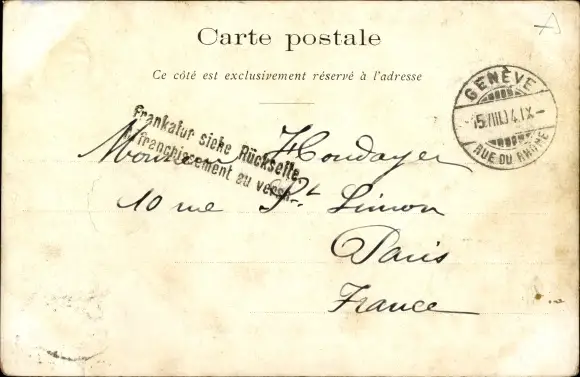 Carte postale
Ce côté est exclusivement réservé à l'adresse
GENÈVE
RUE DU RHÔNE
Frankatur siehe Rückseite
ffranchissement au verso.
Monsieur Houdayer
10 rue St. Simon
Paris
France
A